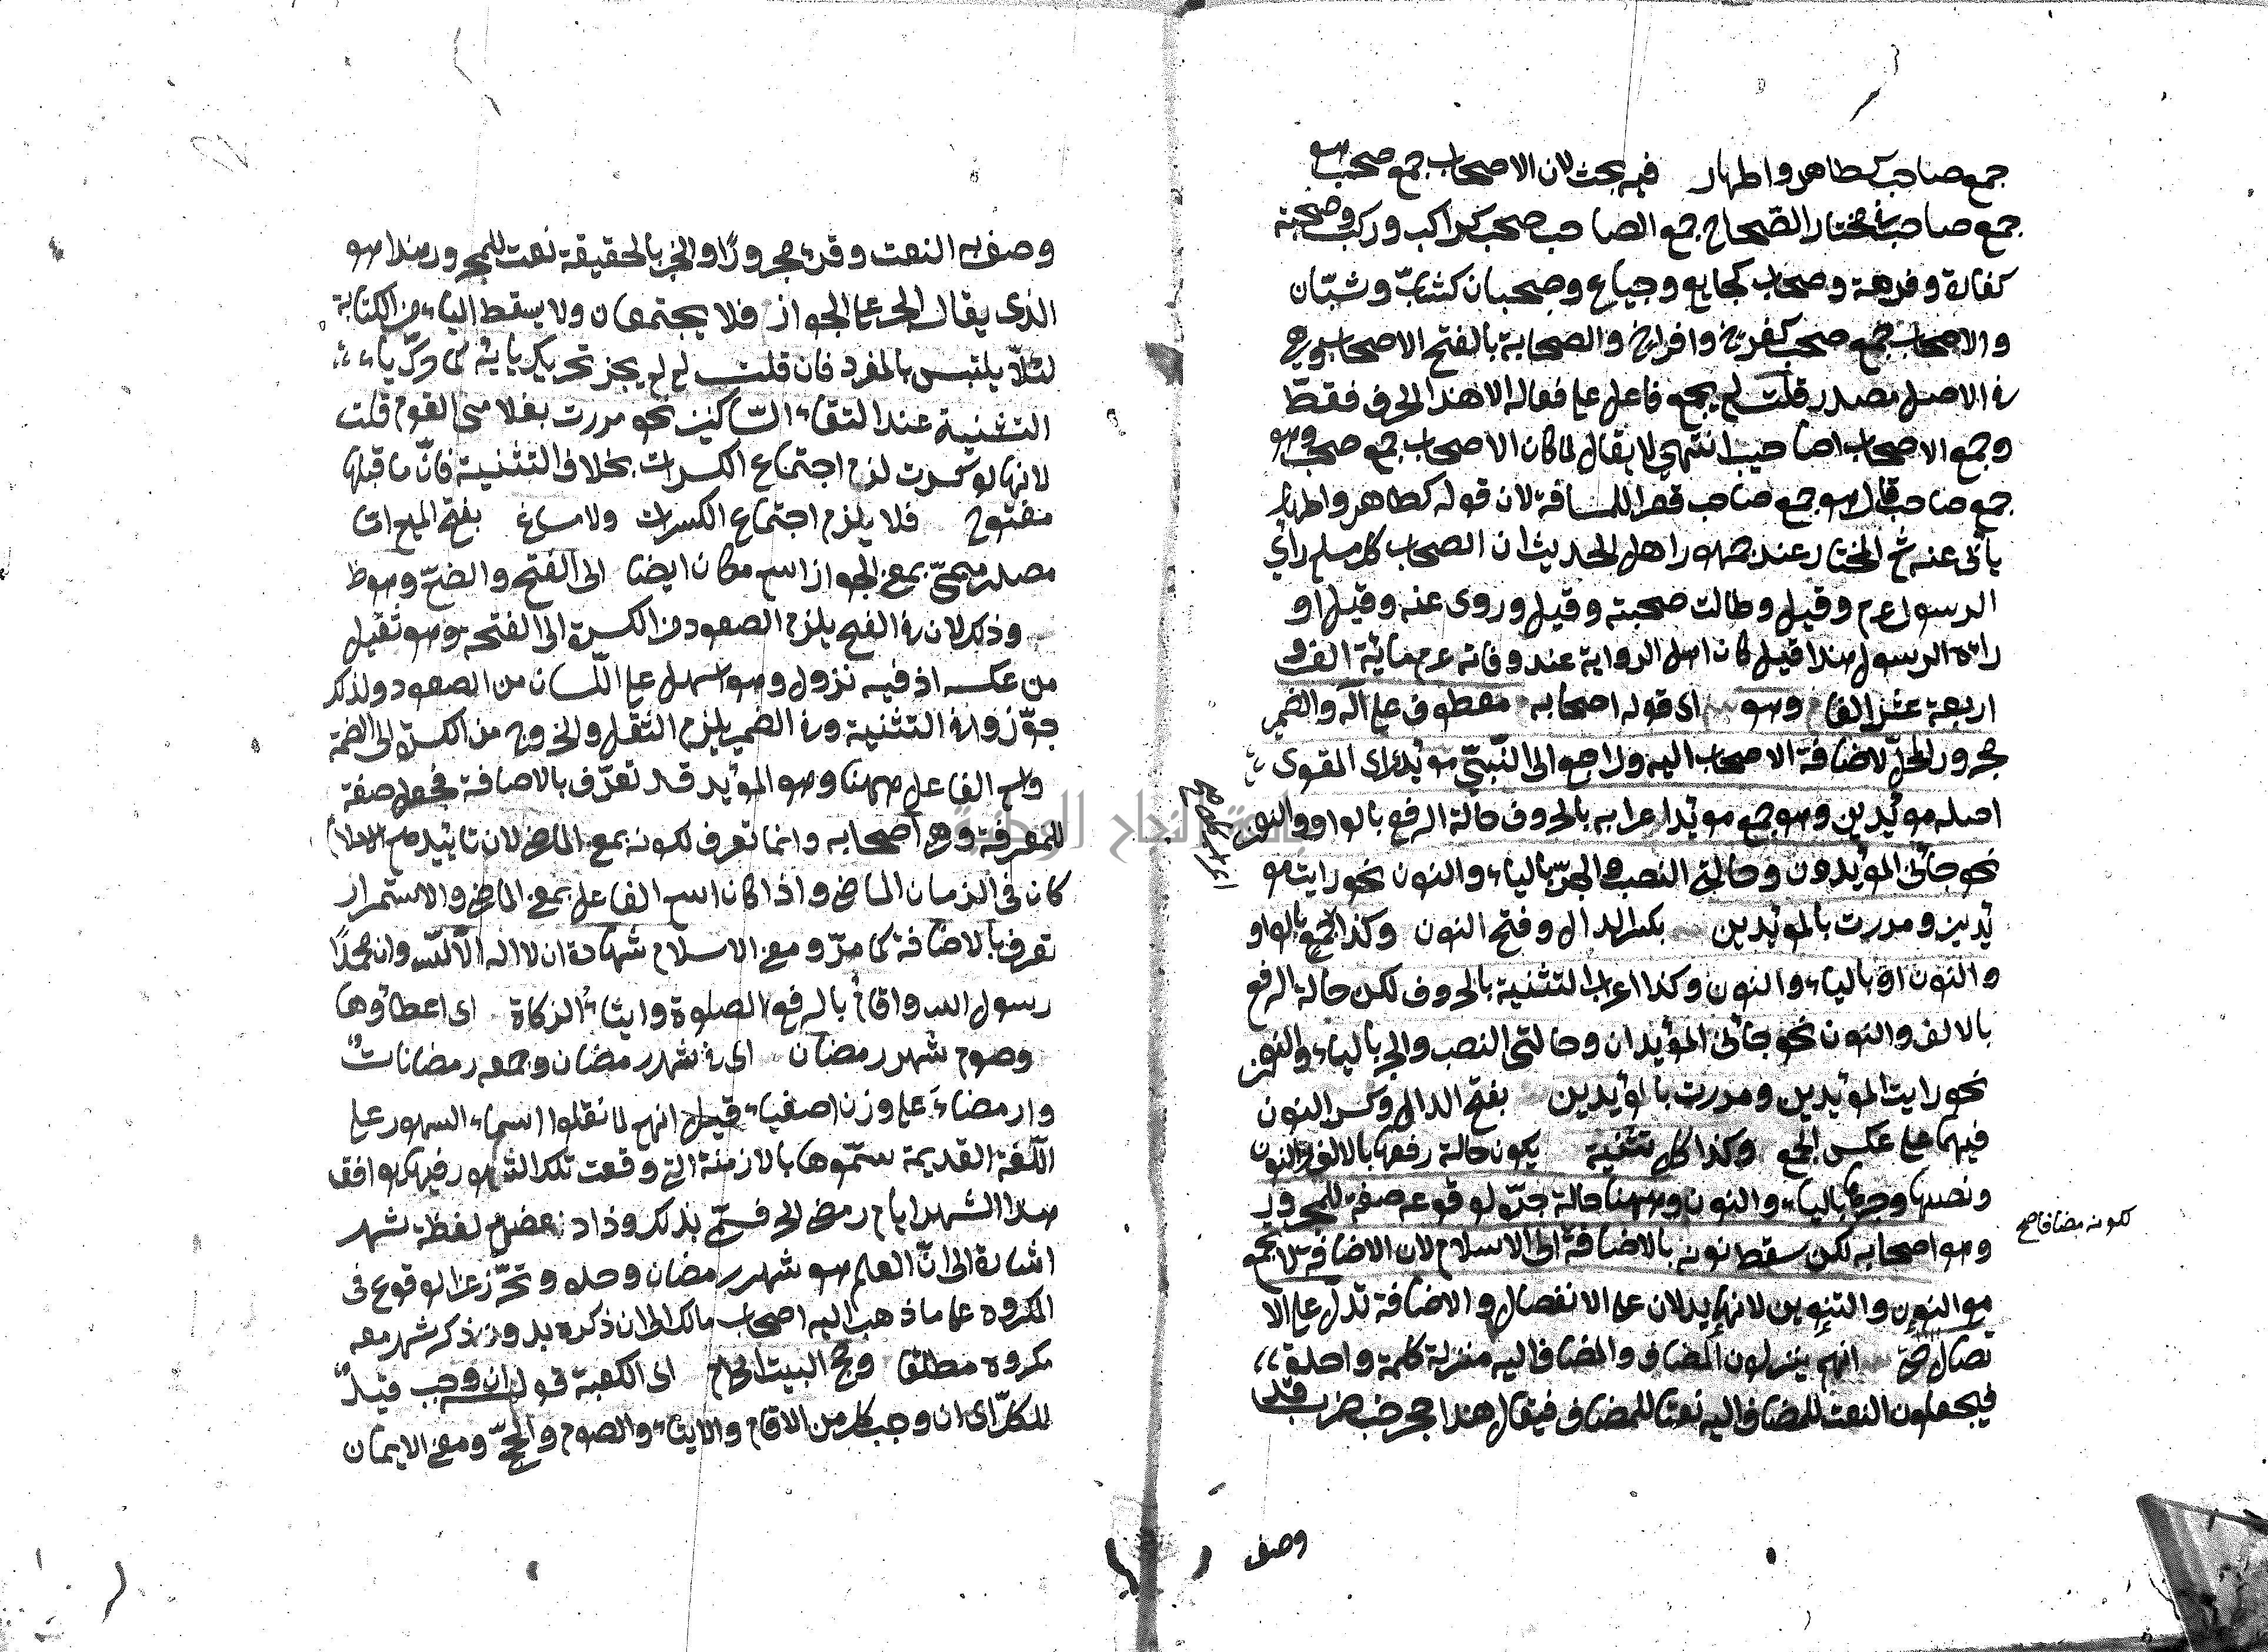 جمع صاحب كطاهر واطهار فيه بحث لان الاصحاب جمع صحب وهو
جمع صاحب في مختار الصّحاح جمع الصاحب صحب كراكب وركب وصحبة
كفارة وفرهة وصحاب كجايع وجياع وصحبان كشابّ وشبّان
والاصحاب جمع صحب كفرخ وافراخ والصحابة بالفتح الاصحاب وهي
في الاصل مصدر قلت لم يجمع فاعل على فعالة الا هذا الحرف فقط
وجمع الاصحاب اصاحيب انتهى لا يقال لما كان الاصحاب جمع صحب وهو
جمع صاحب قال هو جمع صاحب قصرا للمسافة لان قوله كطاهر واطهار
يأبى عنه ثم المختار عند جمهور اهل الحديث ان الصحاب كل مسلم رأي
الرسول عم وقيل وطالت صحبته وقيل وروى عنه وقيل او
راه الرسول هذا قيل كان اهل الرواية عند وفاته عم مائة الف و
اربعة عشر الفا وهو اى قوله اصحابه معطوف على آله والضمير
مجرور المحلّ لاضافة الاصحاب اليه وراجع الى النّبيّ مؤيدى اى المقوى
اصله مؤيدين وهو جمع مؤيد اعرابه بالحروف حالة الرفع بالواو والنون
نحو جائنى المؤيدون وحالتى النصب والجرّ بالياء والنون نحو رايت مو
ئيدين ومررت بالمؤيدين بكسر الدال وفتح النون وكذا الجمع بالواو
والنون او بالياء والنون وكذا اعراب التثنية بالحروف لكن حالة الرفع
بالالف والنون نحو جائنى المؤيدان وحالتى النصب والجر بالياء والنون
نحو رايت المؤيدين ومررت بالمؤيدين بفتح الدال وكسر النون
فيهما على عكس الجمع وكذا كل تثنية يكون حالة رفعها بالالف والنون
ونصبها وجرها بالياء والنون وههنا حالة جرّ لوقوعه صفة للمجرور
وهو اصحابه لكن سقط نونه بالاضافة الى الاسلام لان الاضافة لا تجمع
لكونه مضافا صح
مع النون والتنوين لانهما يدلان على الانفصال والاضافة تدل على الا
تصال انهم ينزلون المضاف والمضاف اليه منزلة كلمة واحدة
فيجعلون النعت للمضاف اليه نعتا للمضاف فيقال هذا حجر ضب خرب قد
وصف
وصف به النعت وقرء مجرورًا والخرب بالحقيقة نعت للمجرور هذا هو
الذى يقال الجر على الجواز فلا يجتمعان ولا يسقط الياء من الكتابة
لئلّا يلتبس بالمفرد فان قلت لم لم يجز تحريك يائه كما حرّك ياء
التثنية عند التقاء السّاكنين نحو مررت بغلامى القوم قلت
لانها لو كسرت لزم اجتماع الكسرات بخلاف التثنية فانّ ما قبلها
مفتوح فلا يلزم اجتماع الكسرات ولا مساغ بفتح الميم اما
مصدر ميمىّ بمعنى الجواز اسم مكان ايضا الى الفتح والضمّ وهو ظ
وذلك لان في الفتح يلزم الصعود من الكسرة الى الفتحة وهو ثقيل
من عكسه اذ فيه نزول وهو اسهل على اللّسان من الصعود ولذلك
جوّزوا في التثنية وفي الضمير يلزم الثقل والخروج من الكسرة الى الضمة
واسم الفاعل ههنا وهو المؤيد قد تعرّف بالاضافة فجعل صفة
للمعرفة وهى اصحابه وانما تعرف لكونه بمعنى الماضى لان تاييدهم الاسلام
كان فى الزمان الماضى واذا كان اسم الفاعل بمعنى الماضى والاستمرار
تعرف بالاضافة كما مرّ ومعنى الاسلام شهادة ان لا اله الّا اللّه وان محمدًا
رسول الله واقام بالرفع الصلوة وايتاء الزكاة اى اعطاؤها
وصوم شهر رمضان اى في شهر رمضان وجمعه رمضانات
وارمضاء على وزن اصفياء قيل انهم لما نقلوا اسماء الشهور على
اللّغة القديمة سمّوها بالازمنة التى وقعت تلك الشهور فيها فوافق
هذا الشهر ايام رمض الحر فسمّى بذلك وزاد لفظة شهر
اشارة الى انّ العلم هو شهر رمضان وحده وتحّرز عن الوقوع فى
المكروه على ما ذهب اليه اصحاب مالك الى ان ذكره بدون ذكر شهر معه
مكروه مطلقا وحج البيت الحرام اى الكعبة قوله ان وجب قيد
للكلّ اى ان وجب كل من الاقام والايتاء والصوم والحجّ ومعنى الايمان
جامعة النجاح الوطنية